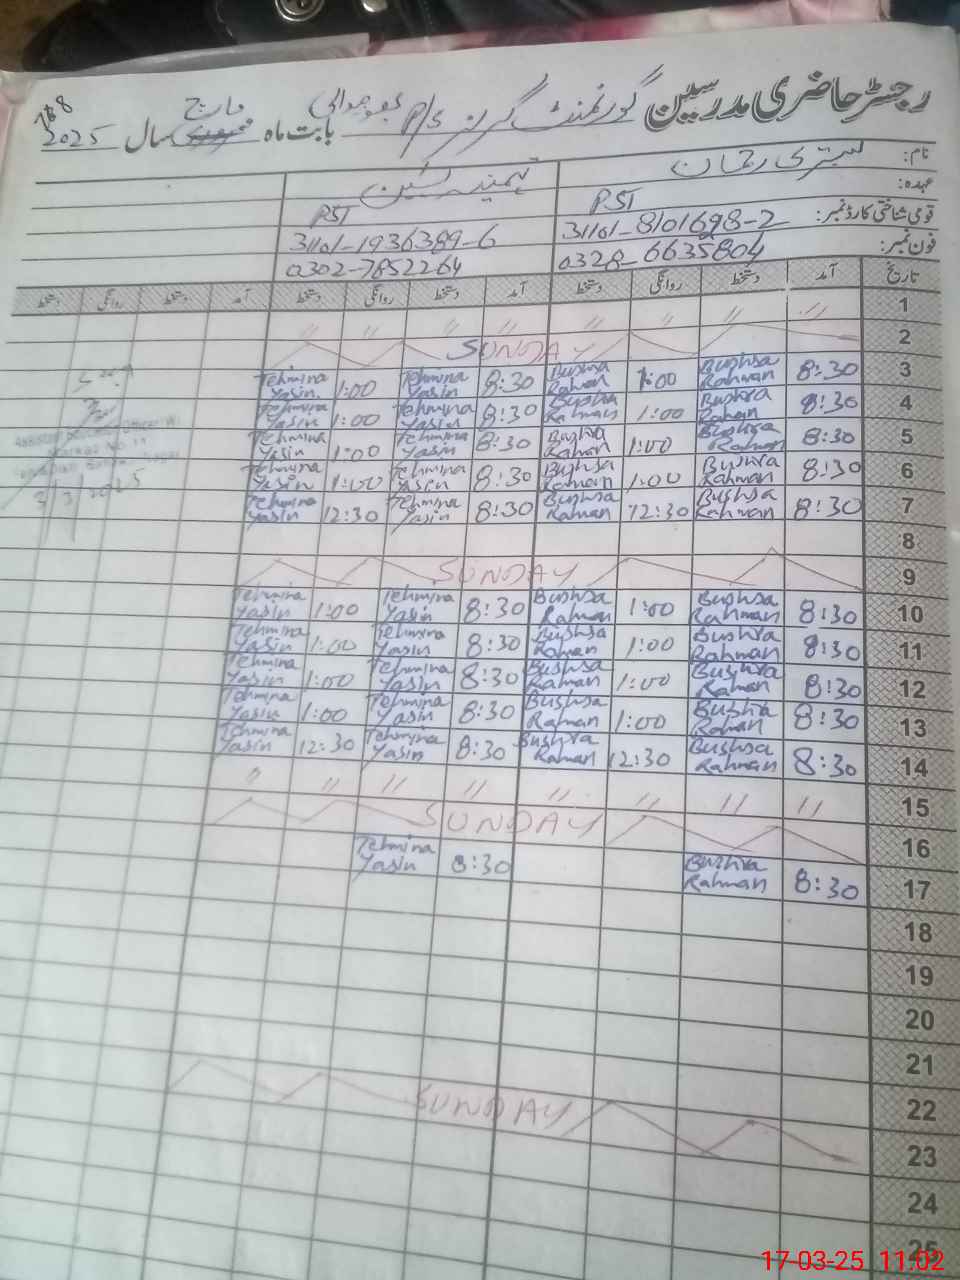 788
رجسٹر حاضری مدرسین گورنمنٹ گرلز P/S بابت ماہ مارچ سال 2025
نام: بشریٰ رحمان تہمینہ یٰسین
عہدہ: PST PST
قومی شناختی کارڈ نمبر: 31101-8101698-2 31101-1936389-6
فون نمبر: 0328-6635804 0302-7852264
تاریخ آمد دستخط روانگی دستخط آمد دستخط روانگی دستخط آمد دستخط روانگی دستخط
1 〃 〃 〃 〃 〃 〃 〃 〃
2 SUNDAY
3 8:30 Bushra Rahman 1:00 Bushra Rahman 8:30 Tehmina Yasin 1:00 Tehmina Yasin
4 8:30 Bushra Rahman 1:00 Bushra Rahman 8:30 Tehmina Yasin 1:00 Tehmina Yasin
5 8:30 Bushra Rahman 1:00 Bushra Rahman 8:30 Tehmina Yasin 1:00 Tehmina Yasin
6 8:30 Bushra Rahman 1:00 Bushra Rahman 8:30 Tehmina Yasin 1:00 Tehmina Yasin
7 8:30 Bushra Rahman 12:30 Bushra Rahman 8:30 Tehmina Yasin 12:30 Tehmina Yasin
8
9 SUNDAY
10 8:30 Bushra Rahman 1:00 Bushra Rahman 8:30 Tehmina Yasin 1:00 Tehmina Yasin
11 8:30 Bushra Rahman 1:00 Bushra Rahman 8:30 Tehmina Yasin 1:00 Tehmina Yasin
12 8:30 Bushra Rahman 1:00 Bushra Rahman 8:30 Tehmina Yasin 1:00 Tehmina Yasin
13 8:30 Bushra Rahman 1:00 Bushra Rahman 8:30 Tehmina Yasin 1:00 Tehmina Yasin
14 8:30 Bushra Rahman 12:30 Bushra Rahman 8:30 Tehmina Yasin 12:30 Tehmina Yasin
15 〃 〃 〃 〃 〃 〃 〃 〃
16 SUNDAY
17 8:30 Bushra Rahman 8:30 Tehmina Yasin
18
19
20
21
22
SUNDAY
23
24
25
Assistant Education Officer
Markaz No.
3/3/2025
17-03-25 11:02